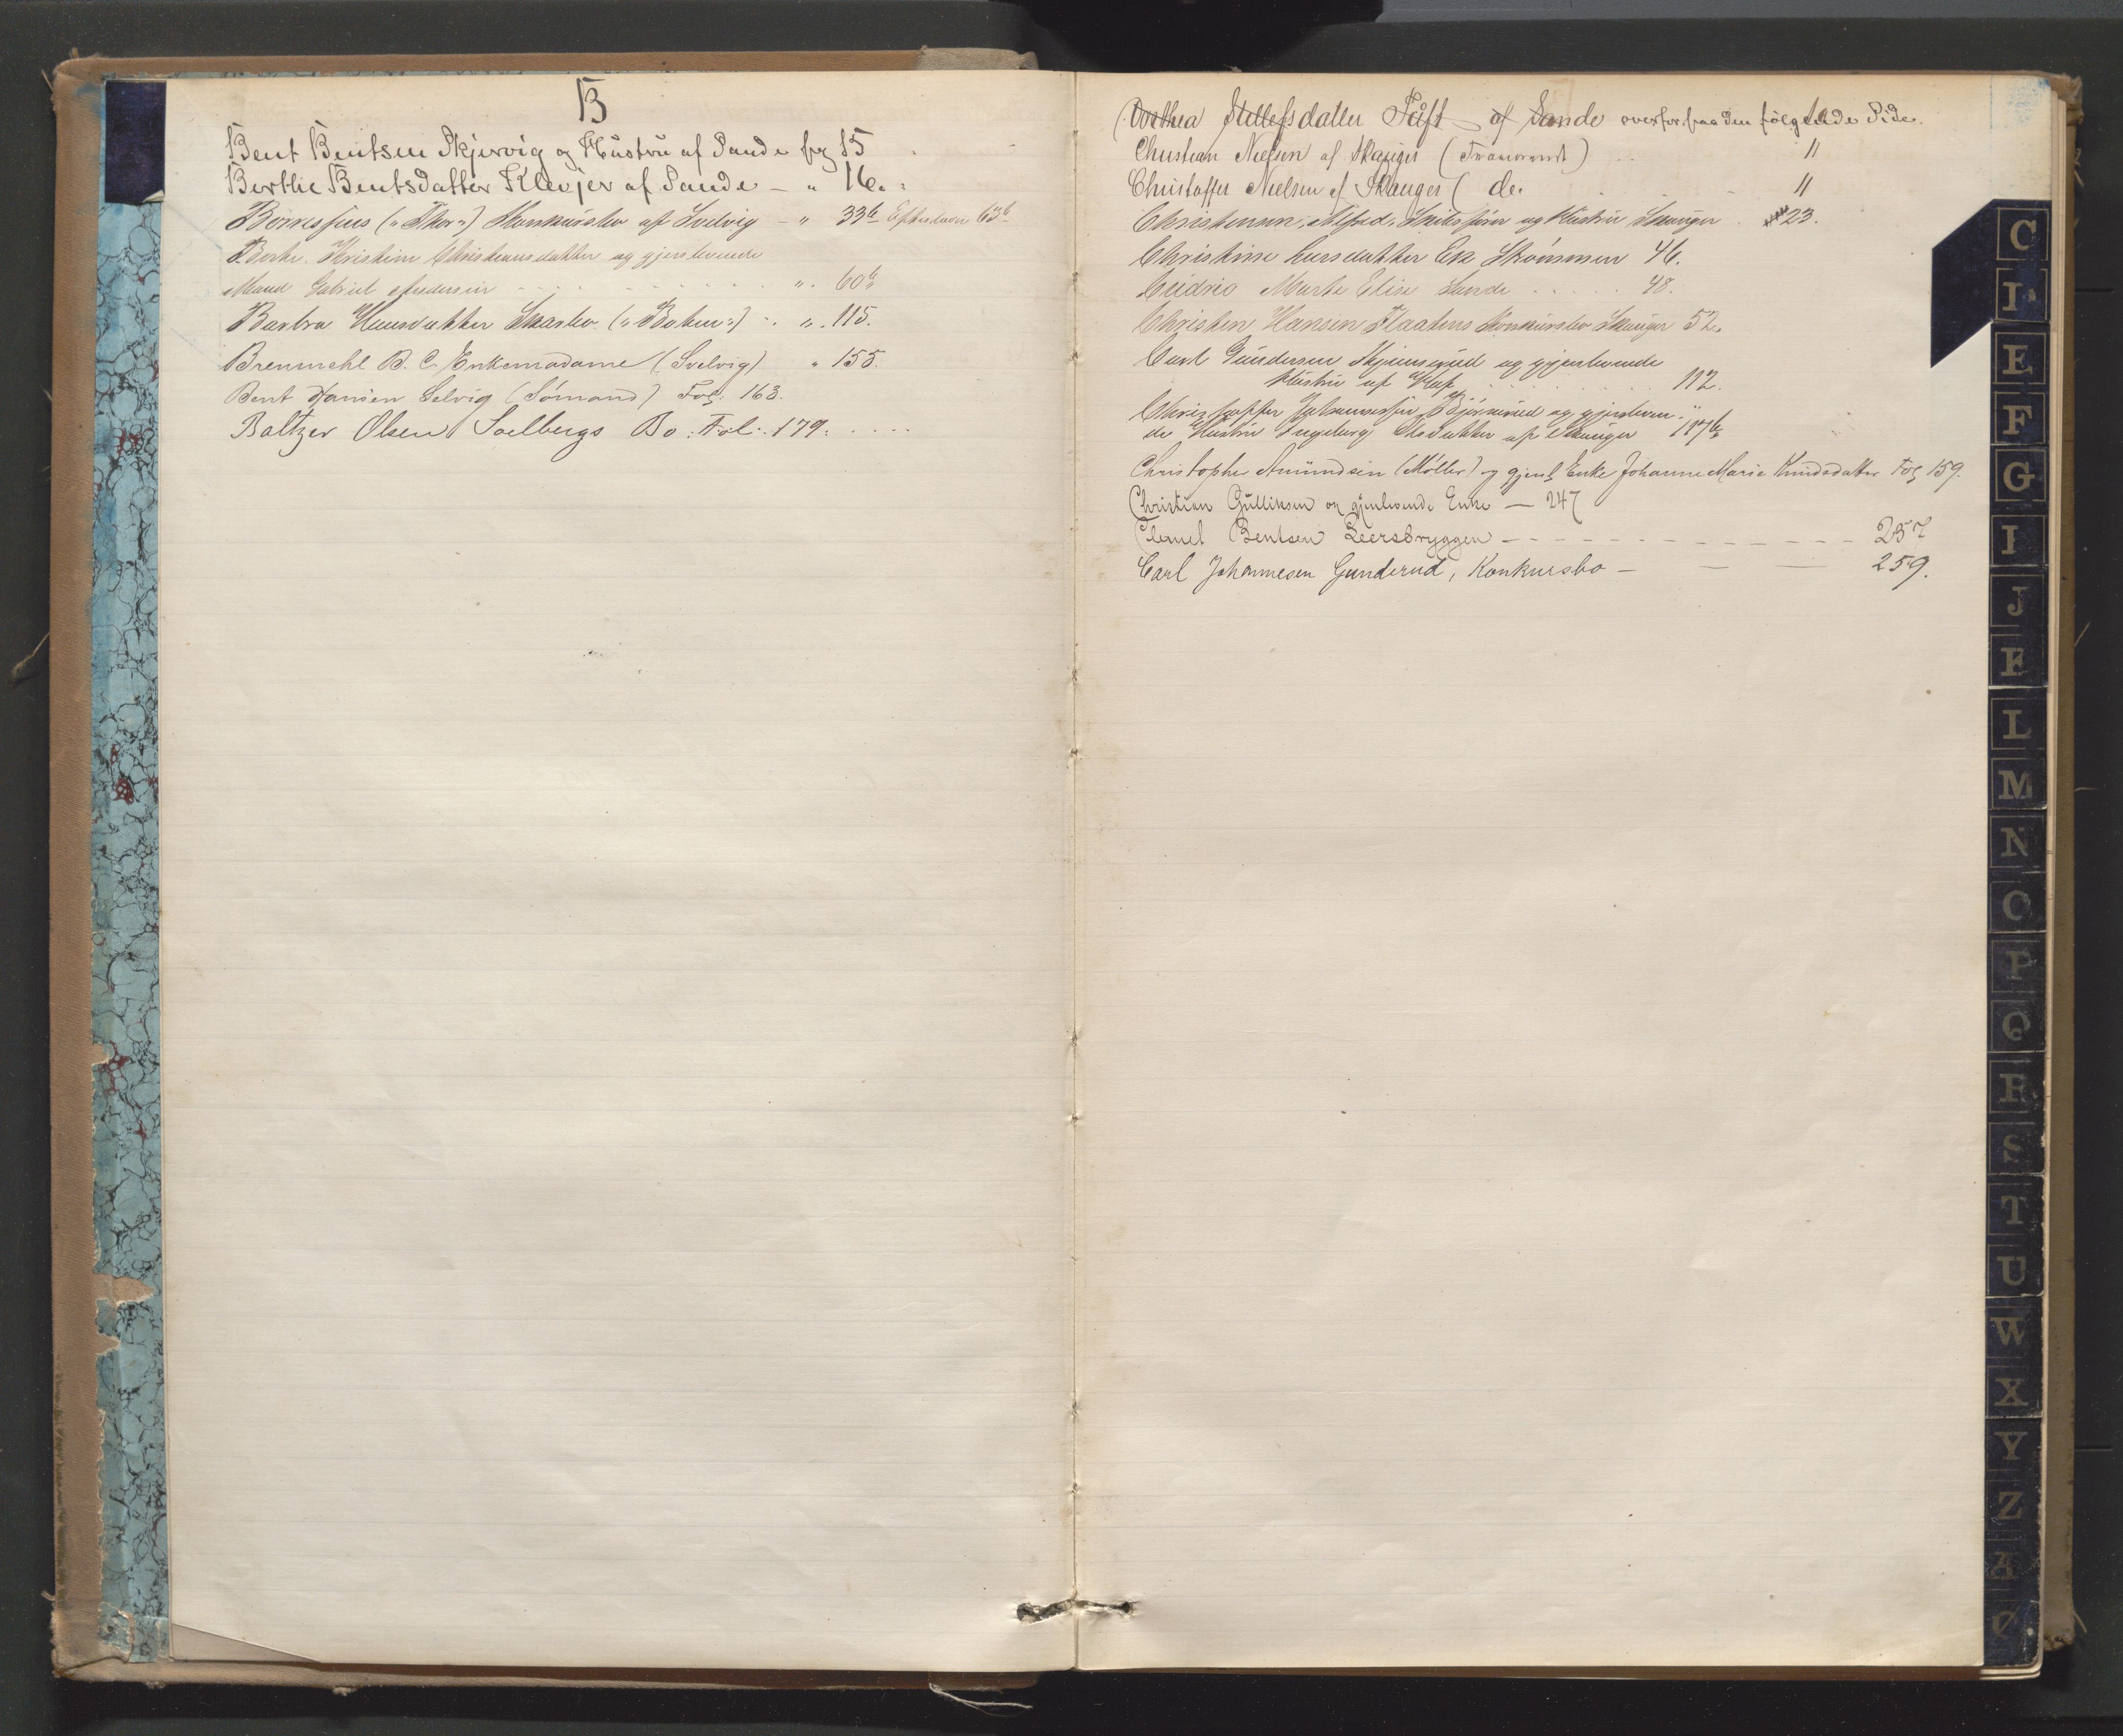 B
Bent Bentsen Skjervig og Hustru af Sande fog 15
Berthe Bentsdatter Klevjer af Sande - " 16.
Børresens ("Thor") Konkursbo af Svelvig - " 33b Efterladte 63b
Berte Kristine Christensdatter og gjenlevende
Mand Gabriel Andersen ". 60b
Barbra Hansdatter Skarbo ("Boken") ". 115.
Bremmehl B. C. Enkemadame (Svelvig) " 155.
Bent Hansen Selvig (Sømand) Fol. 163.
Baltzer Olsen Solbergs Bo: Fol. 179.
Dorthea Stillefsdatter Tuft af Sande overfør. paa den følgende Side.
Christian Nielsen af Skauger (Framrandt) 11
Christoffer Nielsen af Skauger ( do. 11
Christensen, Alfred, Skibsfører og Hustru Skauger 23.
Christine Larsdatter Ek Strømmen 46.
Cudrio Marte Elise Sande 48.
Christen Hansen Flaatens Konkursbo Skauger 52.
Carl Gundersen Skjønserud og gjenlevende
Hustru af Hof 112.
Christopher Johannessen Bjørnerud og gjenleven-
de Hustru Ingeborg Olsdatter af Skauger 117b
Christopher Amundsen (Møller) og gjenl Enke Johanne Marie Knudsdatter Fol 159.
Christian Gulliksen og gjenlevende Enke — 247
Clemet Bentsen Leersbryggen 257
Carl Johannesen Gunderud, Konkursbo — 259.
C
I
E
F
G
I
J
K
L
M
N
O
P
Q
R
S
T
U
W
X
Y
Z
Æ
Ø